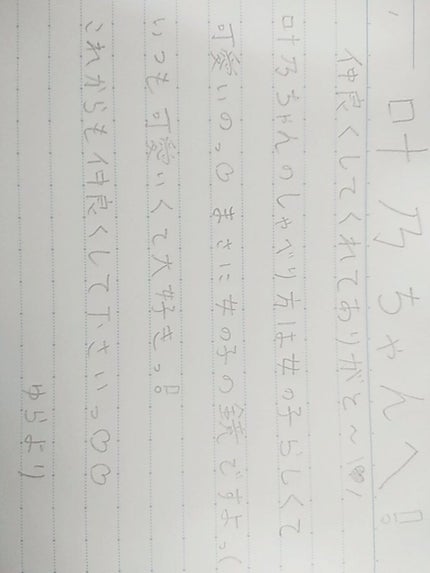 叶乃ちゃんへ!
仲良くしてくれてありがと〜!♡!
叶乃ちゃんのしゃべり方は女の子らしくて
可愛いの。♡まさに女の子の鏡ですよっ(
いつも可愛いくて大好きっ!
これからも仲良くして下さいっ♡♡
ゆらより